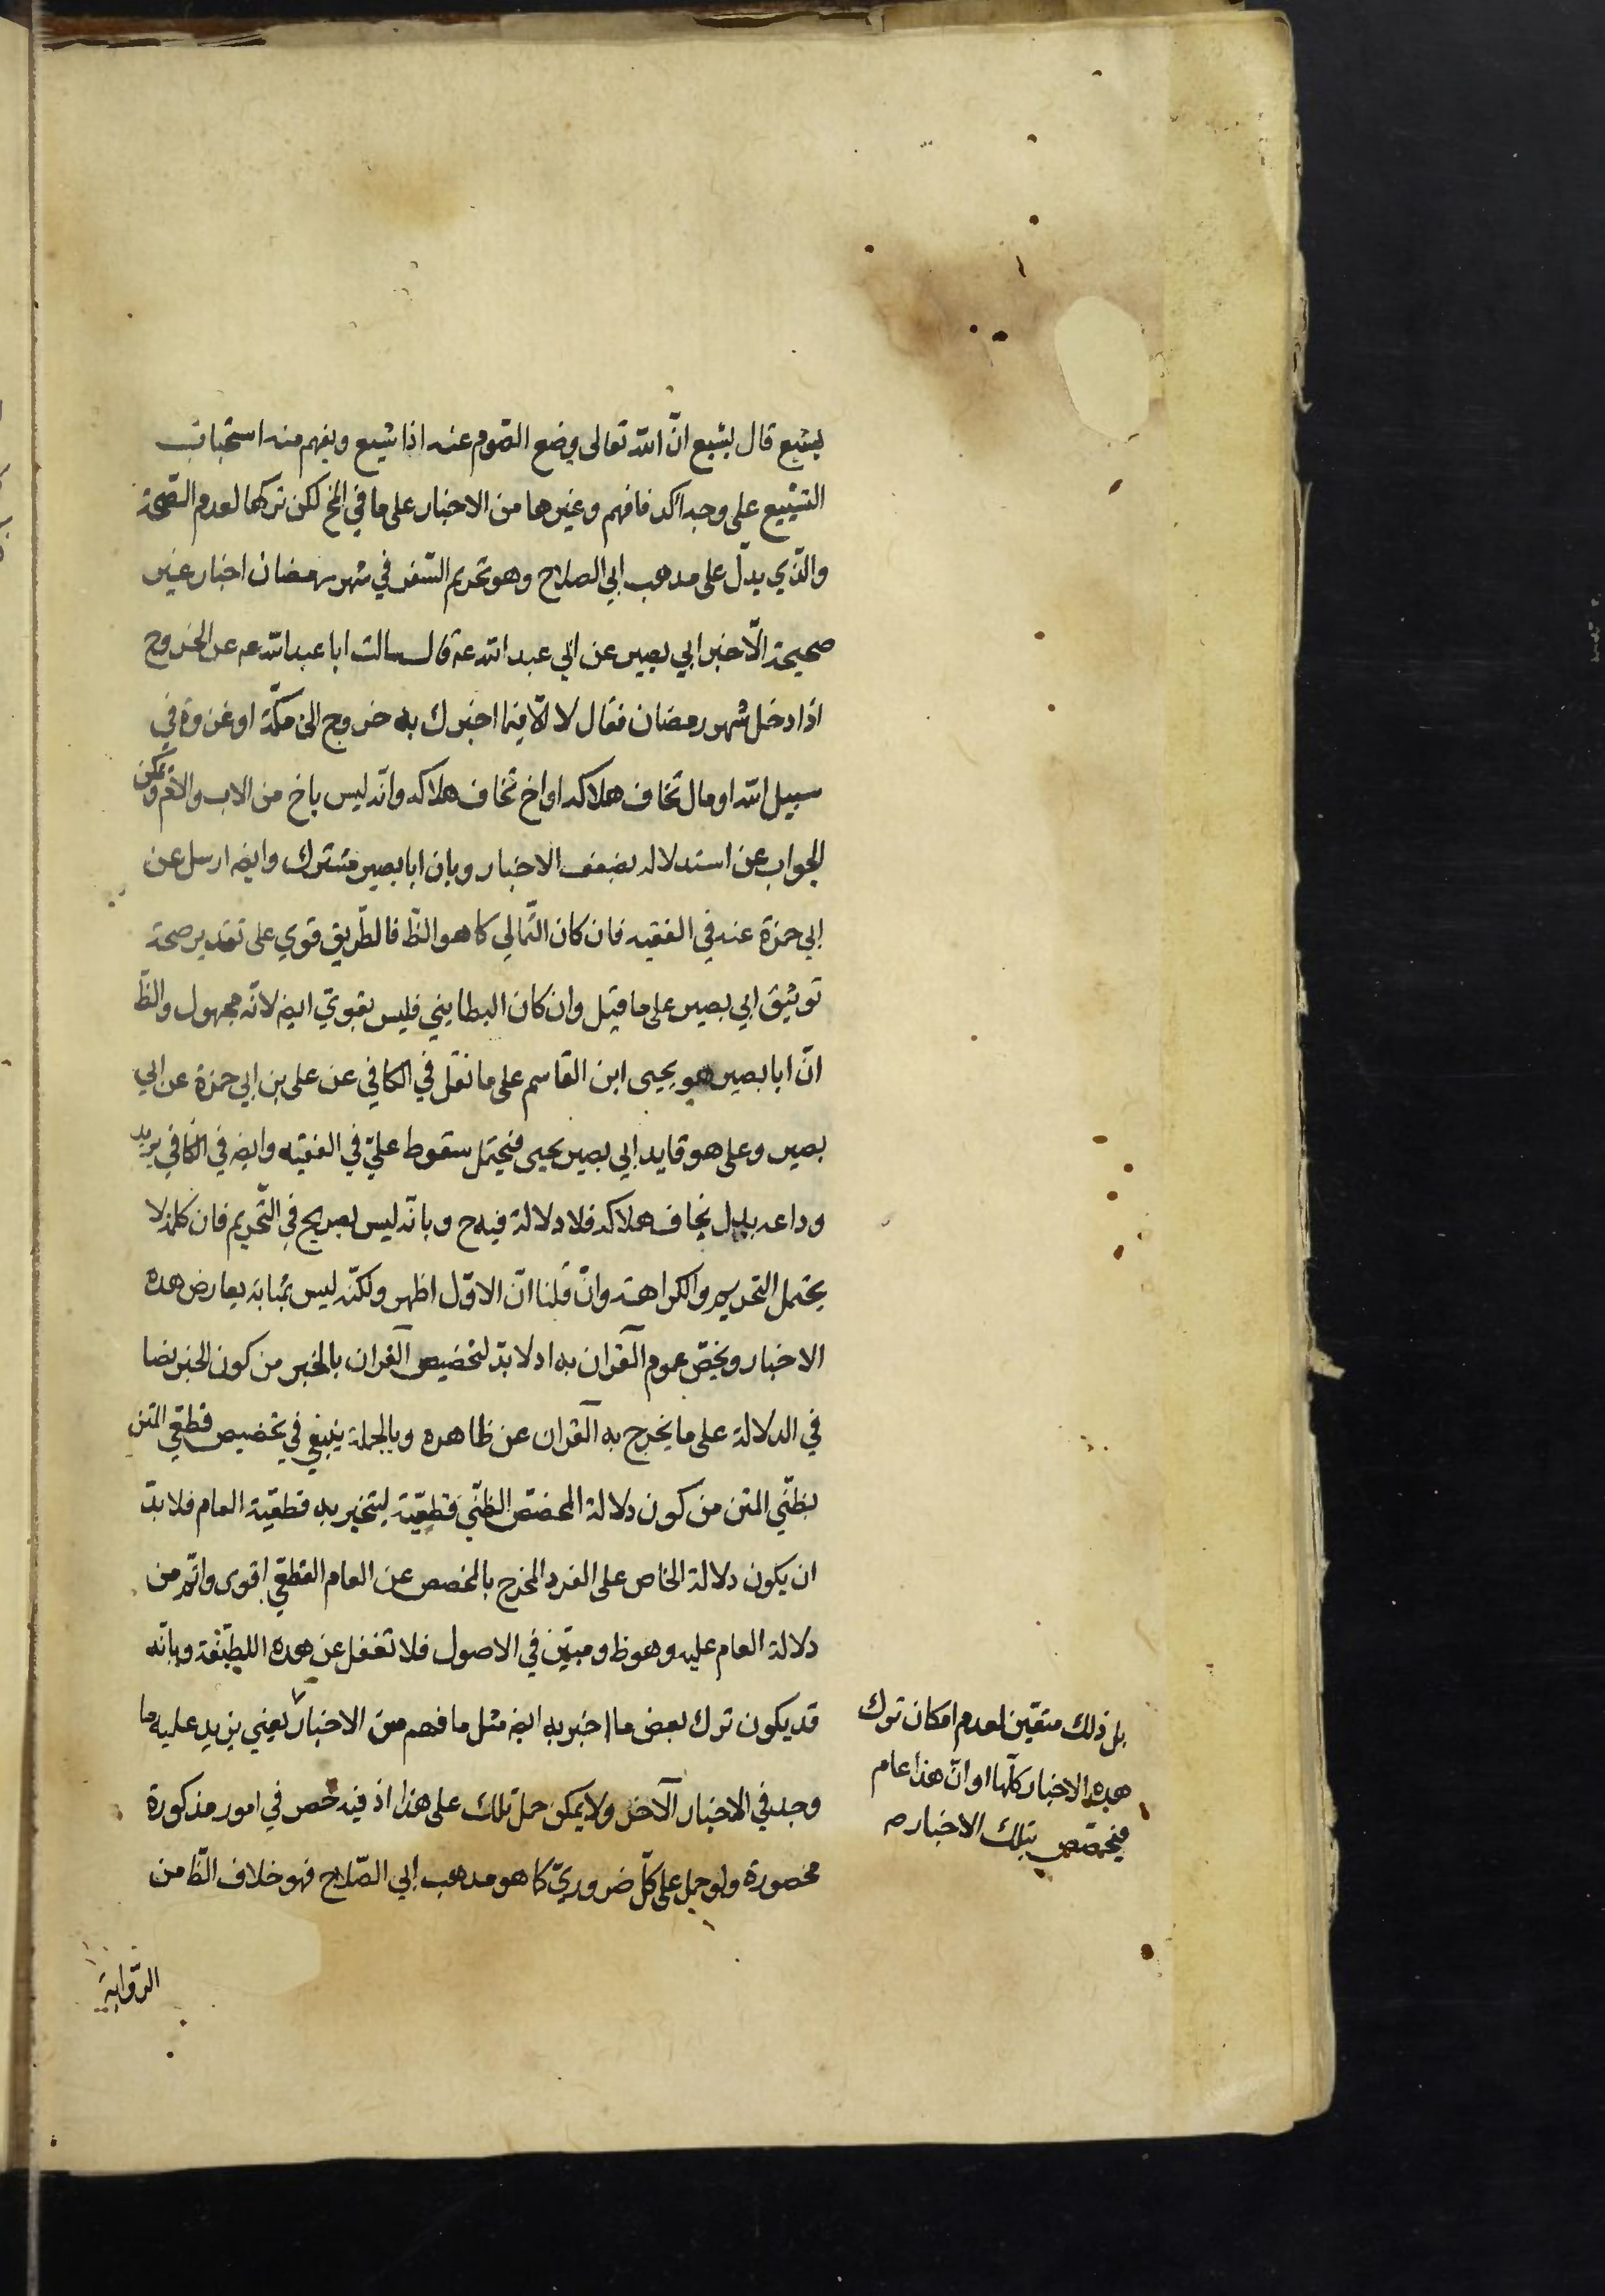 يشيع قال يشيع انّ الله تعالى وضع الصّوم عنه اذا شيع ويفهم منه استحباب
التشييع على وجه آكد فافهم وغيرها من الاخبار على ما في المخ لكن تركها لعدم الصّحة
والذي يدلّ على مذهب ابي الصلاح وهو تحريم السّفر في شهر رمضان اخبار غير
صحيحة الّا خبر ابي بصير عن ابي عبد الله عه قال سالت ابا عبد الله عه عن الخروج
اذا دخل شهر رمضان فقال لا الّا فيما اخبرك به خروج الى مكّة او غزوة في
سبيل الله او مال تخاف هلاكه او اخ تخاف هلاكه وانّه ليس باخ من الاب والامّ ويمكن
الجواب عن استدلاله بضعف الاخبار وبان ابا بصير مشترك وايضه ارسل عن
ابي حمزة عنه في الفقيه فان كان الثّمالي كما هو الظّ فالطّريق قوي على تقدير صحة
توثيق ابي بصير على ما قيل وان كان البطايني فليس بقويّ ايضه لانّه مجهول والظّ
انّ ابا بصير هو يحيى ابن القاسم على ما نقل في الكافي عن على بن ابي حمزة عن ابي
بصير وعلى هو قايد ابي بصير يحيى فيحتمل سقوط عليّ في الفقيه وايضه في الكافي يريد
وداعه بدل يخاف هلاكه فلا دلالة فيه ح وبانّه ليس بصريح في التّحريم فان كلمة لا
يحتمل التحريم والكراهة وانّ قلنا انّ الاوّل اظهر ولكنّه ليس بمثابة يعارض هذه
الاخبار ويخصّ عموم القرآن به اذ لا بدّ لتخصيص القرآن بالخبر من كون الخبر نصا
في الدلالة على ما يخرج به القرآن عن ظاهره وبالجملة ينبغي في تخصيص قطعّي المتن
بظنّي المتن من كون دلالة المخصّص الظنّي قطعيّة ليتخير به قطعيّة العام فلا بدّ
ان يكون دلالة الخاص على الفرد المخرج بالمخصص عن العام القطعّي اقوى واتّم من
دلالة العام عليه وهو ظ ومبيّن في الاصول فلا تغفل عن هذه اللطيفة وبانّه
قد يكون ترك بعض ما اخبر به ايضه مثل ما فهم من الاخبار يعني يزيد عليه ما
وجد في الاخبار الآخر ولا يمكن حمل تلك على هذا اذ فيه خص في امور مذكورة
محصورة ولو حمل على كلّ ضروريّ كما هو مذهب ابي الصّلاح فهو خلاف الظّ من
الرّواية
بل ذلك متعّين لعدم امكان ترك
هذه الاخبار كلّها او انّ هذا عام
فيخصّص بتلك الاخبار م